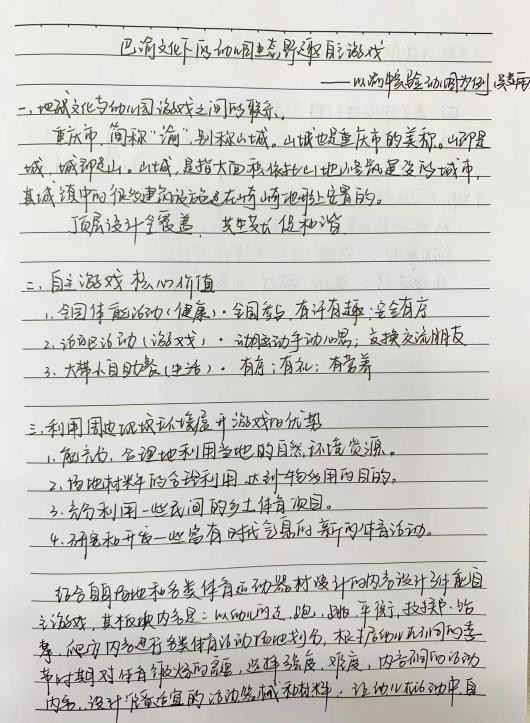 巴渝文化下的幼儿园生态野趣自主游戏
——以渝中实验幼儿园为例
一、地域文化与幼儿园游戏之间的联系。
重庆市,简称“渝”,别称山城。山城也是重庆市的美称。山即是
城,城即是山。山城,是指大面积依托山地修筑建设的城市,
其城镇中的很多建筑设施是在崎岖地形上安置的。
顶层设计全覆盖 共生共长促和谐
二、自主游戏核心价值
1、全园体能活动(健康)·全园参与,有评有趣;安全有序
2、活动(游戏)·动脑动手动心思;交换交流朋友
3、大带小自助餐(生活)·有序;有礼;有营养
三、利用周边现成环境展开游戏的优势
1、能充分、合理地利用当地的自然环境资源。
2、场地材料的合理利用达到一物多用的目的。
3、充分利用一些民间的乡土体育项目。
4、研究和开发一些富有时代气息的新的体育活动。
结合自身场地和各类体育运动器材设计的内容设计体能自
主游戏,其板块内容是:以幼儿的走、跑、跳、平衡、投掷、钻
爬的内容进行各类体育活动场地划分,根据幼儿在不同的季
节时期对体育锻炼的需要,选择强度,难度,内容不同的活动
内容,设计适宜的活动器械和材料,让幼儿在活动中自